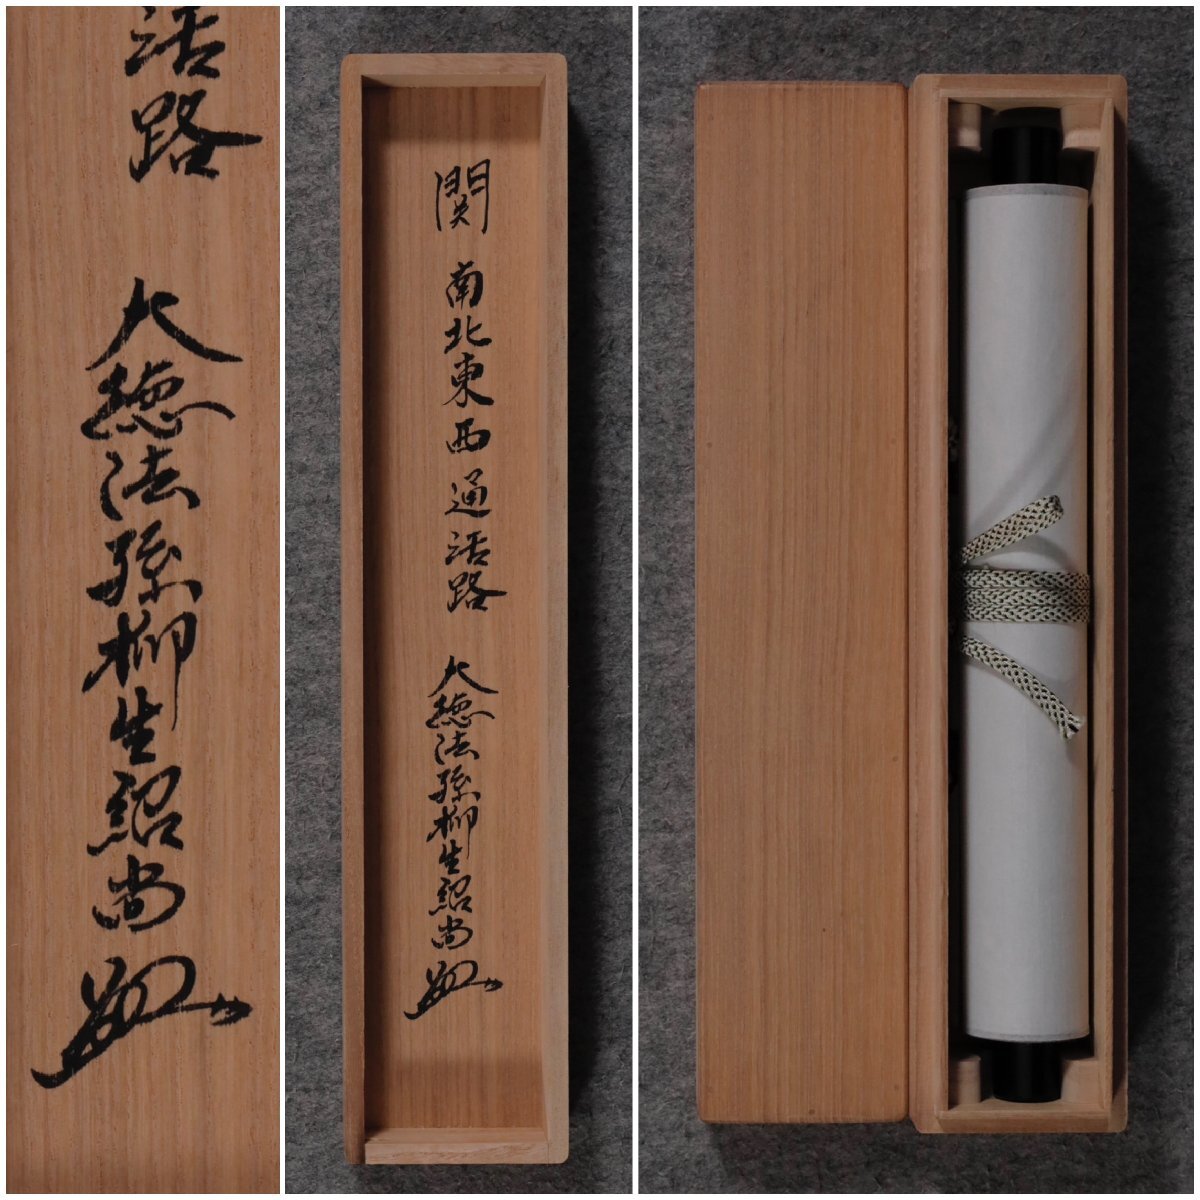 活路
大徳法孫柳生紹尚
関 南北東西通活路
大徳法孫柳生紹尚